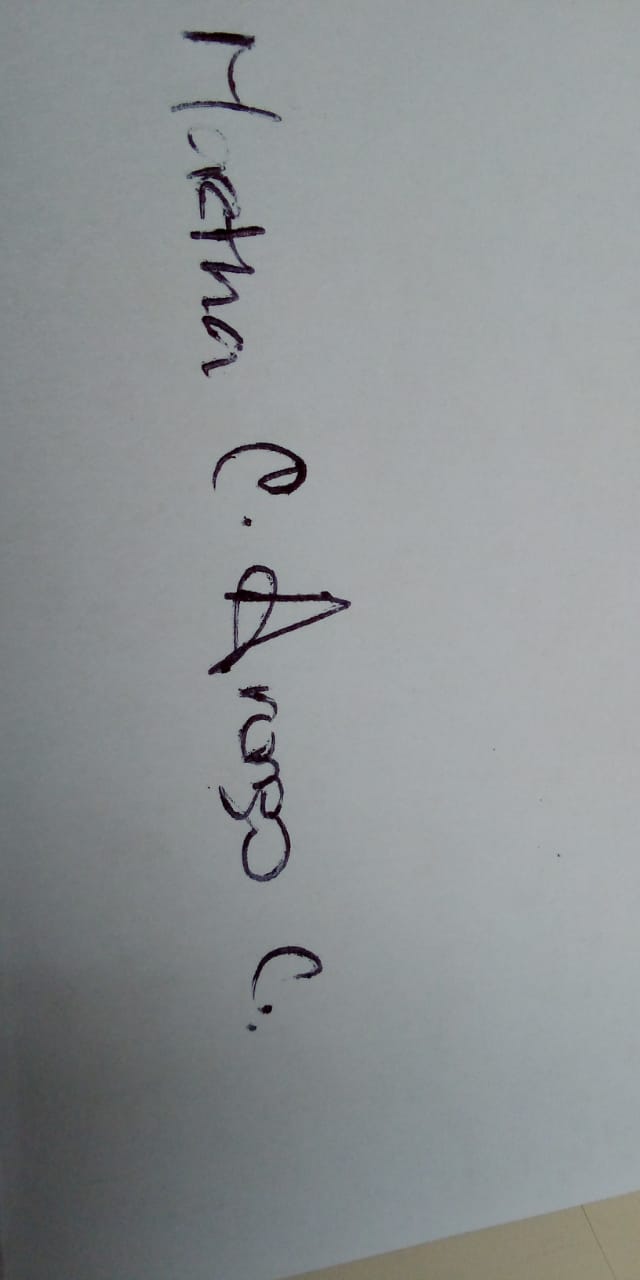 Martha C. Arango C..